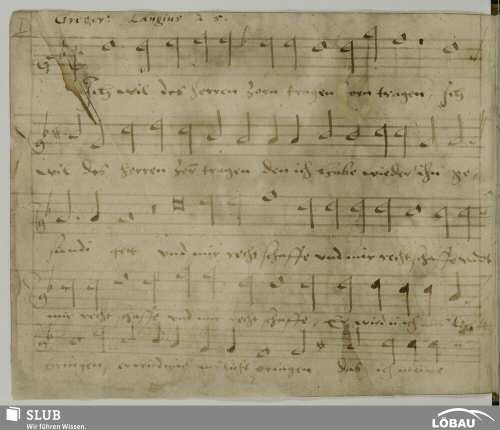 Gregor: Langius à 5.
Ich wil des Herren Zorn tragen Zorn tragen, Ich
wil des Herren Zorn tragen den ich habe wieder ihn ge-
sündi gett und mir recht schaffe und mir recht schaffe undt
mir recht schaffe und mir recht schaffe, Er wird mich
bringen, er wird mich ans licht bringen das ich meine
SLUB
Wir führen Wissen.
LÖBAU